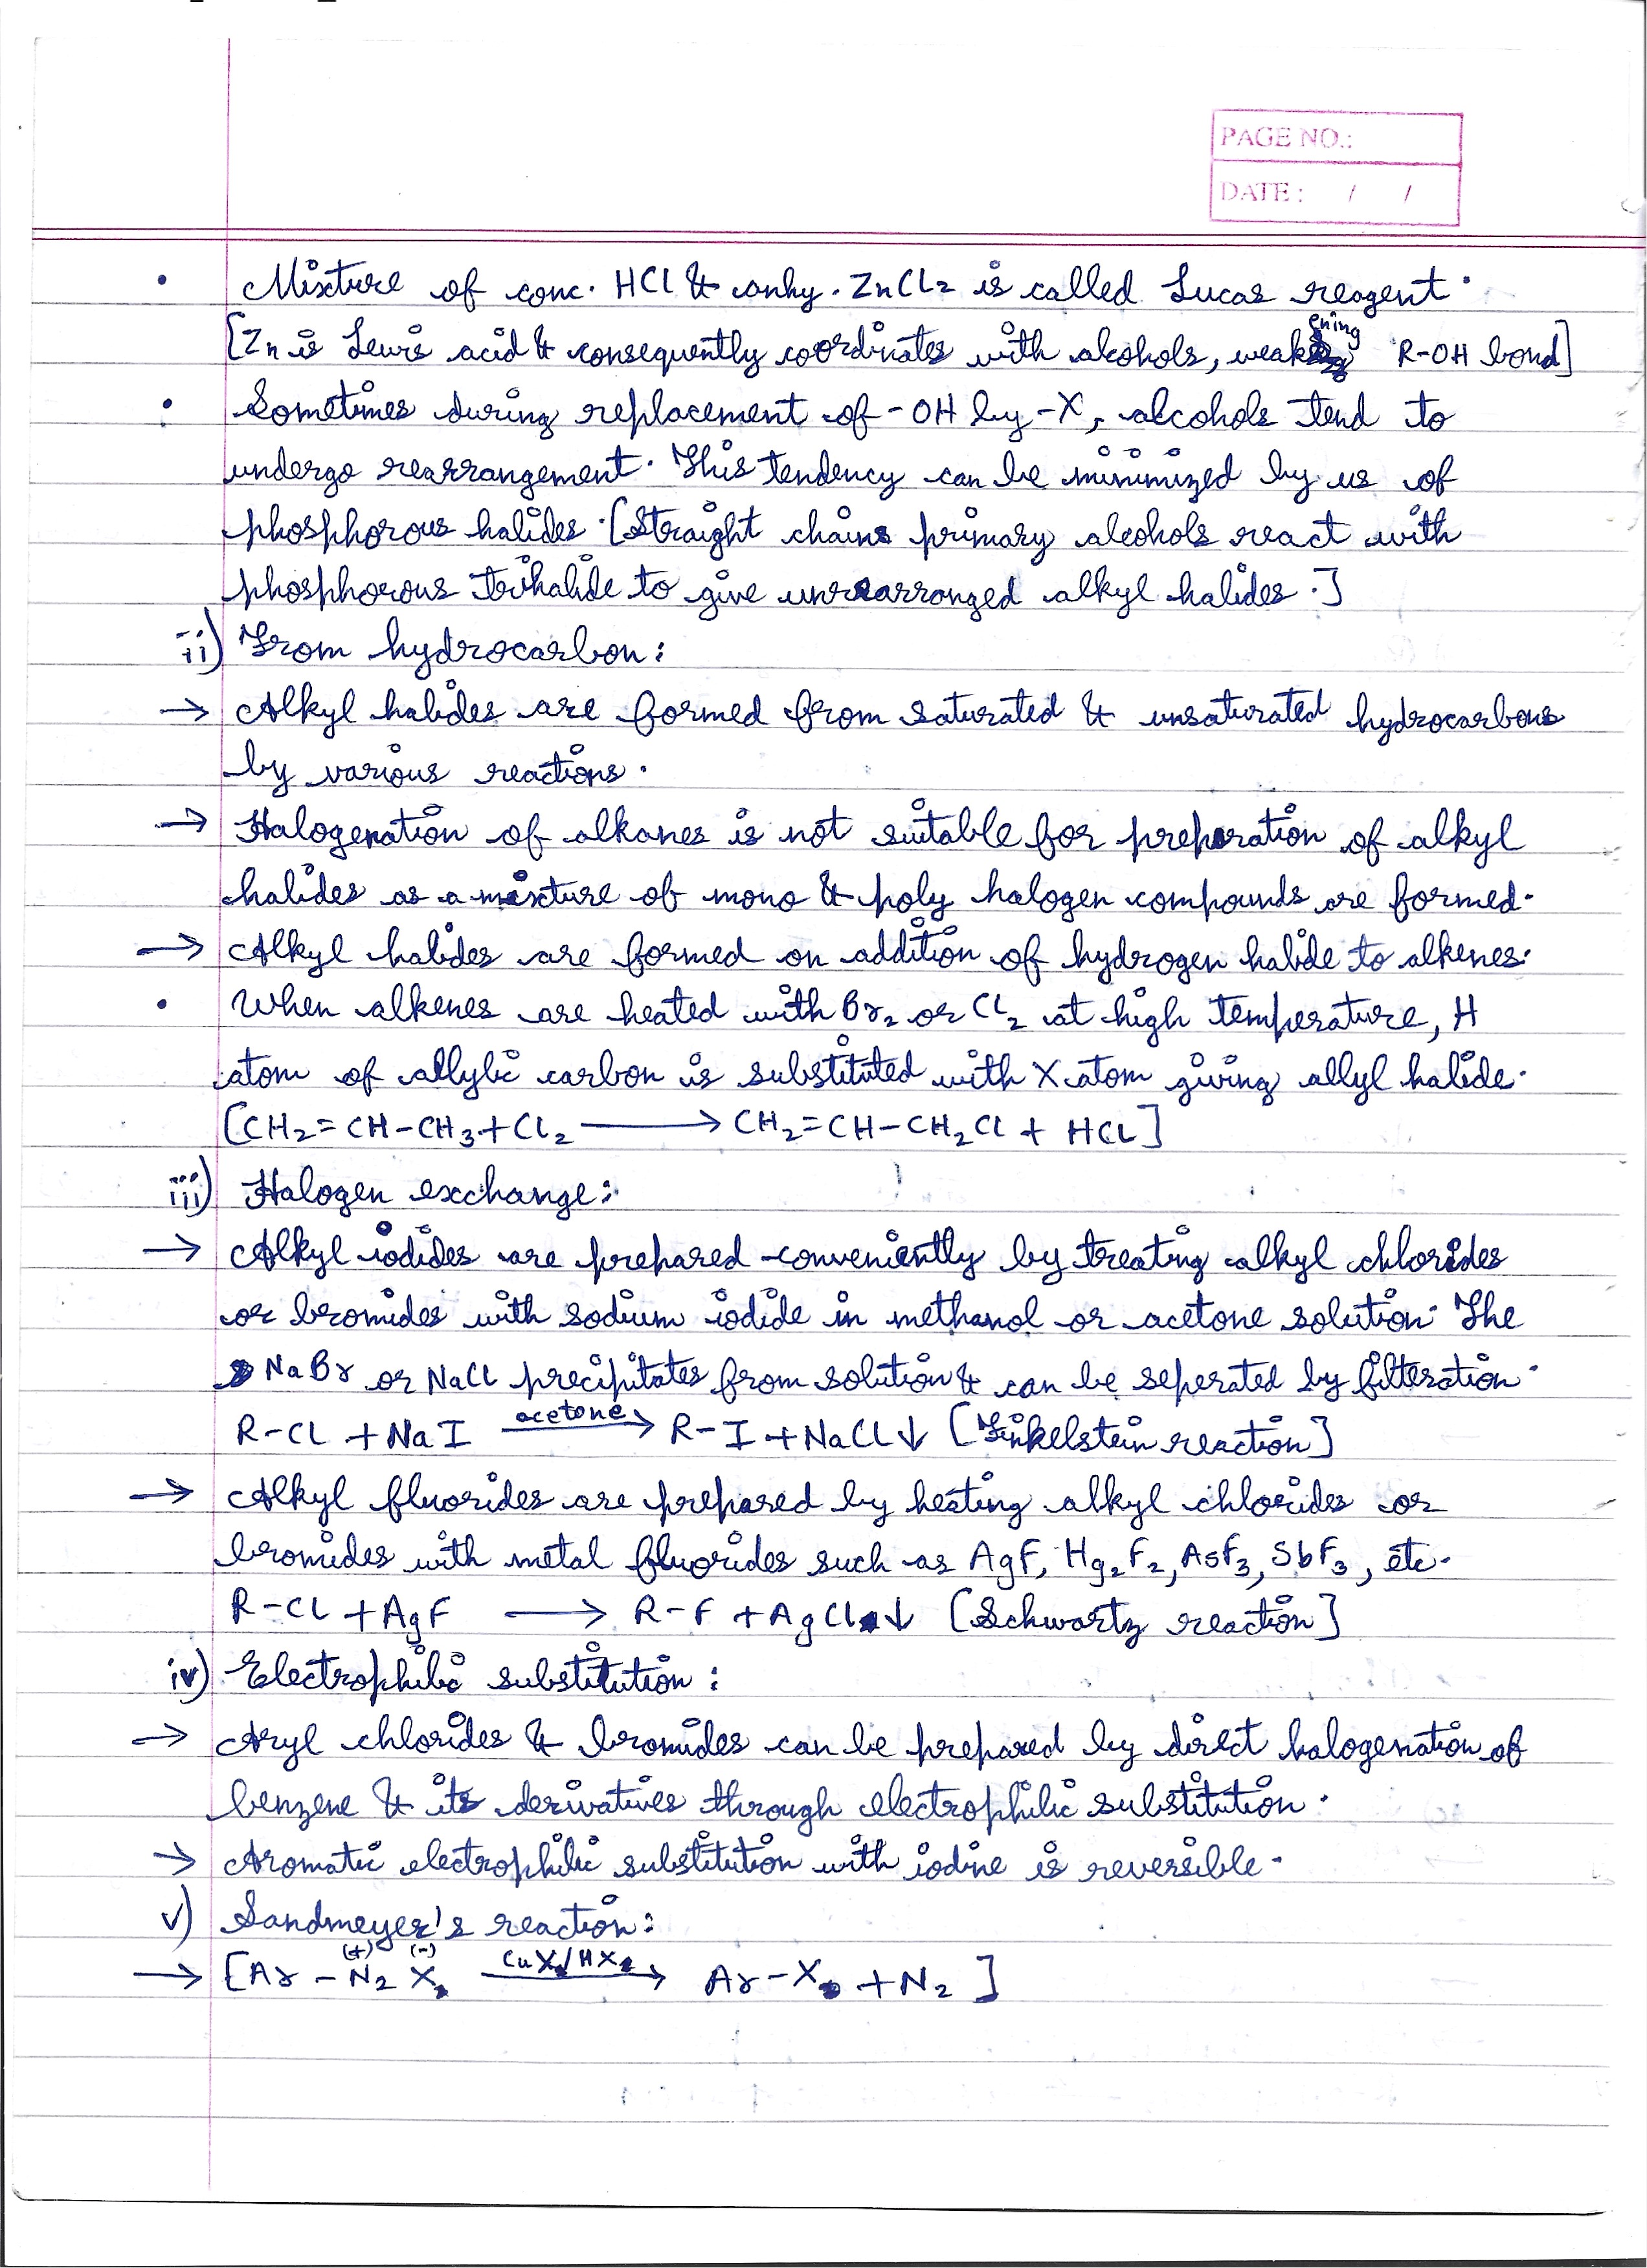 PAGE NO.:
DATE: / /
• Mixture of conc. HCl & anhy. ZnCl2 is called Lucas reagent.
[Zn is Lewis acid & consequently coordinates with alcohols, weakening R-OH bond]
• Sometimes during replacement of -OH by -X, alcohols tend to
undergo rearrangement. This tendency can be minimized by us of
phosphorous halides. [Straight chains primary alcohols react with
phosphorous trihalide to give unrearranged alkyl halides.]
ii) From hydrocarbon:
→ Alkyl halides are formed from saturated & unsaturated hydrocarbons
by various reactions.
→ Halogenation of alkanes is not suitable for preparation of alkyl
halides as a mixture of mono & poly halogen compounds are formed.
→ Alkyl halides are formed on addition of hydrogen halide to alkenes.
• When alkenes are heated with Br2 or Cl2 at high temperature, H
atom of allylic carbon is substituted with X atom giving allyl halide.
[CH2=CH-CH3+Cl2 ⟶ CH2=CH-CH2Cl + HCl]
iii) Halogen exchange:
→ Alkyl iodides are prepared conveniently by treating alkyl chlorides
or bromides with sodium iodide in methanol or acetone solution. The
NaBr or NaCl precipitates from solution & can be seperated by filteration.
R-Cl + NaI acetone→ R-I + NaCl↓ [Finkelstein reaction]
→ Alkyl fluorides are prepared by heating alkyl chlorides or
bromides with metal fluorides such as AgF, Hg2F2, AsF3, SbF3, etc.
R-Cl + AgF ⟶ R-F + AgCl↓ [Schwartz reaction]
iv) Electrophilic substitution:
→ Aryl chlorides & bromides can be prepared by direct halogenation of
benzene & its derivatives through electrophilic substitution.
→ Aromatic electrophilic substitution with iodine is reversible.
v) Sandmeyer's reaction:
→ [Ar - N2(+) X(-) CuX/HX→ Ar-X + N2]